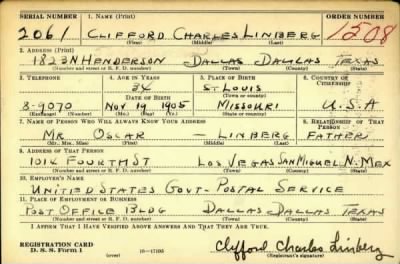 SERIAL NUMBER 1. NAME (Print) ORDER NUMBER
2061 CLIFFORD CHARLES LINBERG 1508
(First) (Middle) (Last)
2. ADDRESS (Print)
1823 N HENDERSON DALLAS DALLAS TEXAS
(Number and street or R. F. D. number) (Town) (County) (State)
3. TELEPHONE 4. AGE IN YEARS 5. PLACE OF BIRTH 6. COUNTRY OF CITIZENSHIP
34 ST LOUIS
DATE OF BIRTH (Town or county)
8-9070 NOV 19 1905 MISSOURI U.S.A
(Exchange) (Number) (Mo.) (Day) (Yr.) (State or country)
7. NAME OF PERSON WHO WILL ALWAYS KNOW YOUR ADDRESS 8. RELATIONSHIP OF THAT PERSON
MR OSCAR — LINBERG FATHER
(Mr., Mrs., Miss) (First) (Middle) (Last)
9. ADDRESS OF THAT PERSON
1014 FOURTH ST LOS VEGAS SAN MIGUEL N. MEX
(Number and street or R. F. D. number) (Town) (County) (State)
10. EMPLOYER'S NAME
UNITED STATES GOVT- POSTAL SERVICE
11. PLACE OF EMPLOYMENT OR BUSINESS
POST OFFICE BLDG DALLAS DALLAS TEXAS
(Number and street or R. F. D. number) (Town) (County) (State)
I AFFIRM THAT I HAVE VERIFIED ABOVE ANSWERS AND THAT THEY ARE TRUE.
REGISTRATION CARD
D. S. S. Form 1 (over) 16—17105 Clifford Charles Linberg
(Registrant's signature)